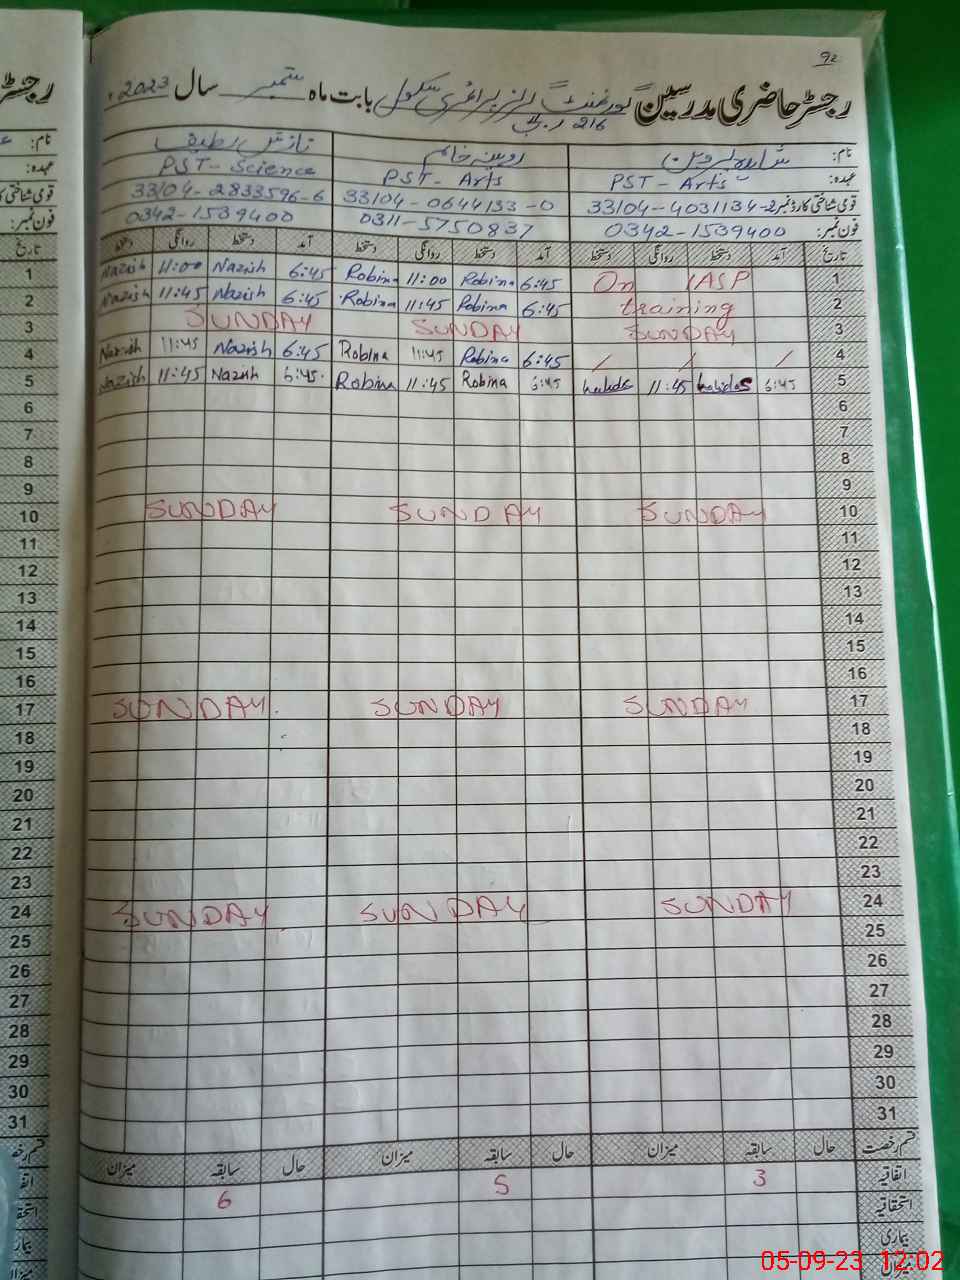 92
رجسٹر حاضری مدرسین گورنمنٹ گرلز پرائمری سکول بابت ماہ ستمبر سال 2023ء
216 ر۔ب
نام: شاہدہ پروین روبینہ خانم نازش لطیف
عہدہ: PST - Arts PST - Arts PST - Science
قومی شناختی کارڈ نمبر 33104-4031134-2 33104-0644133-0 33104-2833596-6
فون نمبر: 0342-1539400 0311-5750837 0342-1539400
تاریخ آمد دستخط روانگی دستخط آمد دستخط روانگی دستخط آمد دستخط روانگی دستخط تاریخ
1 Nazish 11:00 Nazish 6:45 Robina 11:00 Robina 6:45 On IASP 1
2 Nazish 11:45 Nazish 6:45 Robina 11:45 Robina 6:45 training 2
3 SUNDAY SUNDAY SUNDAY 3
4 Nazish 11:45 Nazish 6:45 Robina 11:45 Robina 6:45 / / / 4
5 Nazish 11:45 Nazish 6:45 Robina 11:45 Robina 6:45 11:45 6:45 5
6 6
7 7
8 8
9 9
10 SUNDAY SUNDAY SUNDAY 10
11 11
12 12
13 13
14 14
15 15
16 16
17 SUNDAY SUNDAY SUNDAY 17
18 18
19 19
20 20
21 21
22 22
23 23
24 SUNDAY SUNDAY SUNDAY 24
25 25
26 26
27 27
28 28
29 29
30 30
31 31
قسم رخصت حال سابقہ میزان حال سابقہ میزان حال سابقہ میزان
اتفاقیہ 3 5 6
استحقاقیہ
بیماری
میزان
05-09-23 12:02